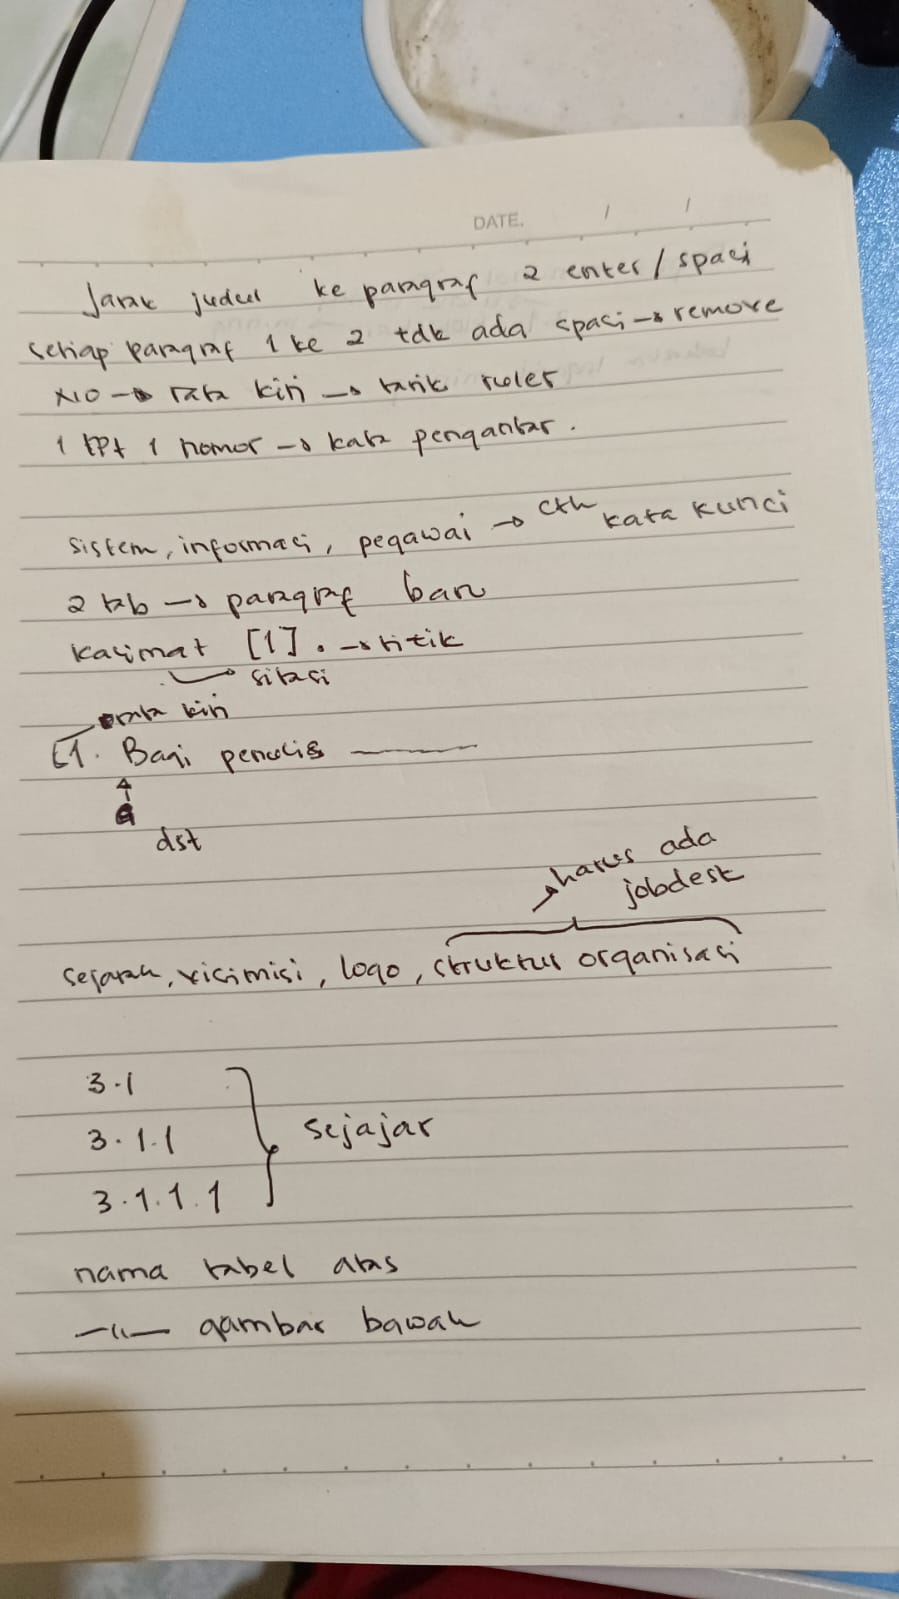 DATE. / /
Jarak judul ke paragraf 2 enter / spasi
setiap paragraf 1 ke 2 tdk ada spasi → remove
→ rata kiri → tarik ruler
1 1 nomor → kata pengantar.
sistem, informasi, pegawai → cth kata kunci
2 tab → paragraf baru
kalimat [1]. → titik
sitasi
rata kiri
1. Bagi penulis
dst
harus ada
jobdesk
sejarah, visi misi, logo, struktur organisasi
3.1
3.1.1
sejajar
3.1.1.1
nama tabel atas
—"— gambar bawah